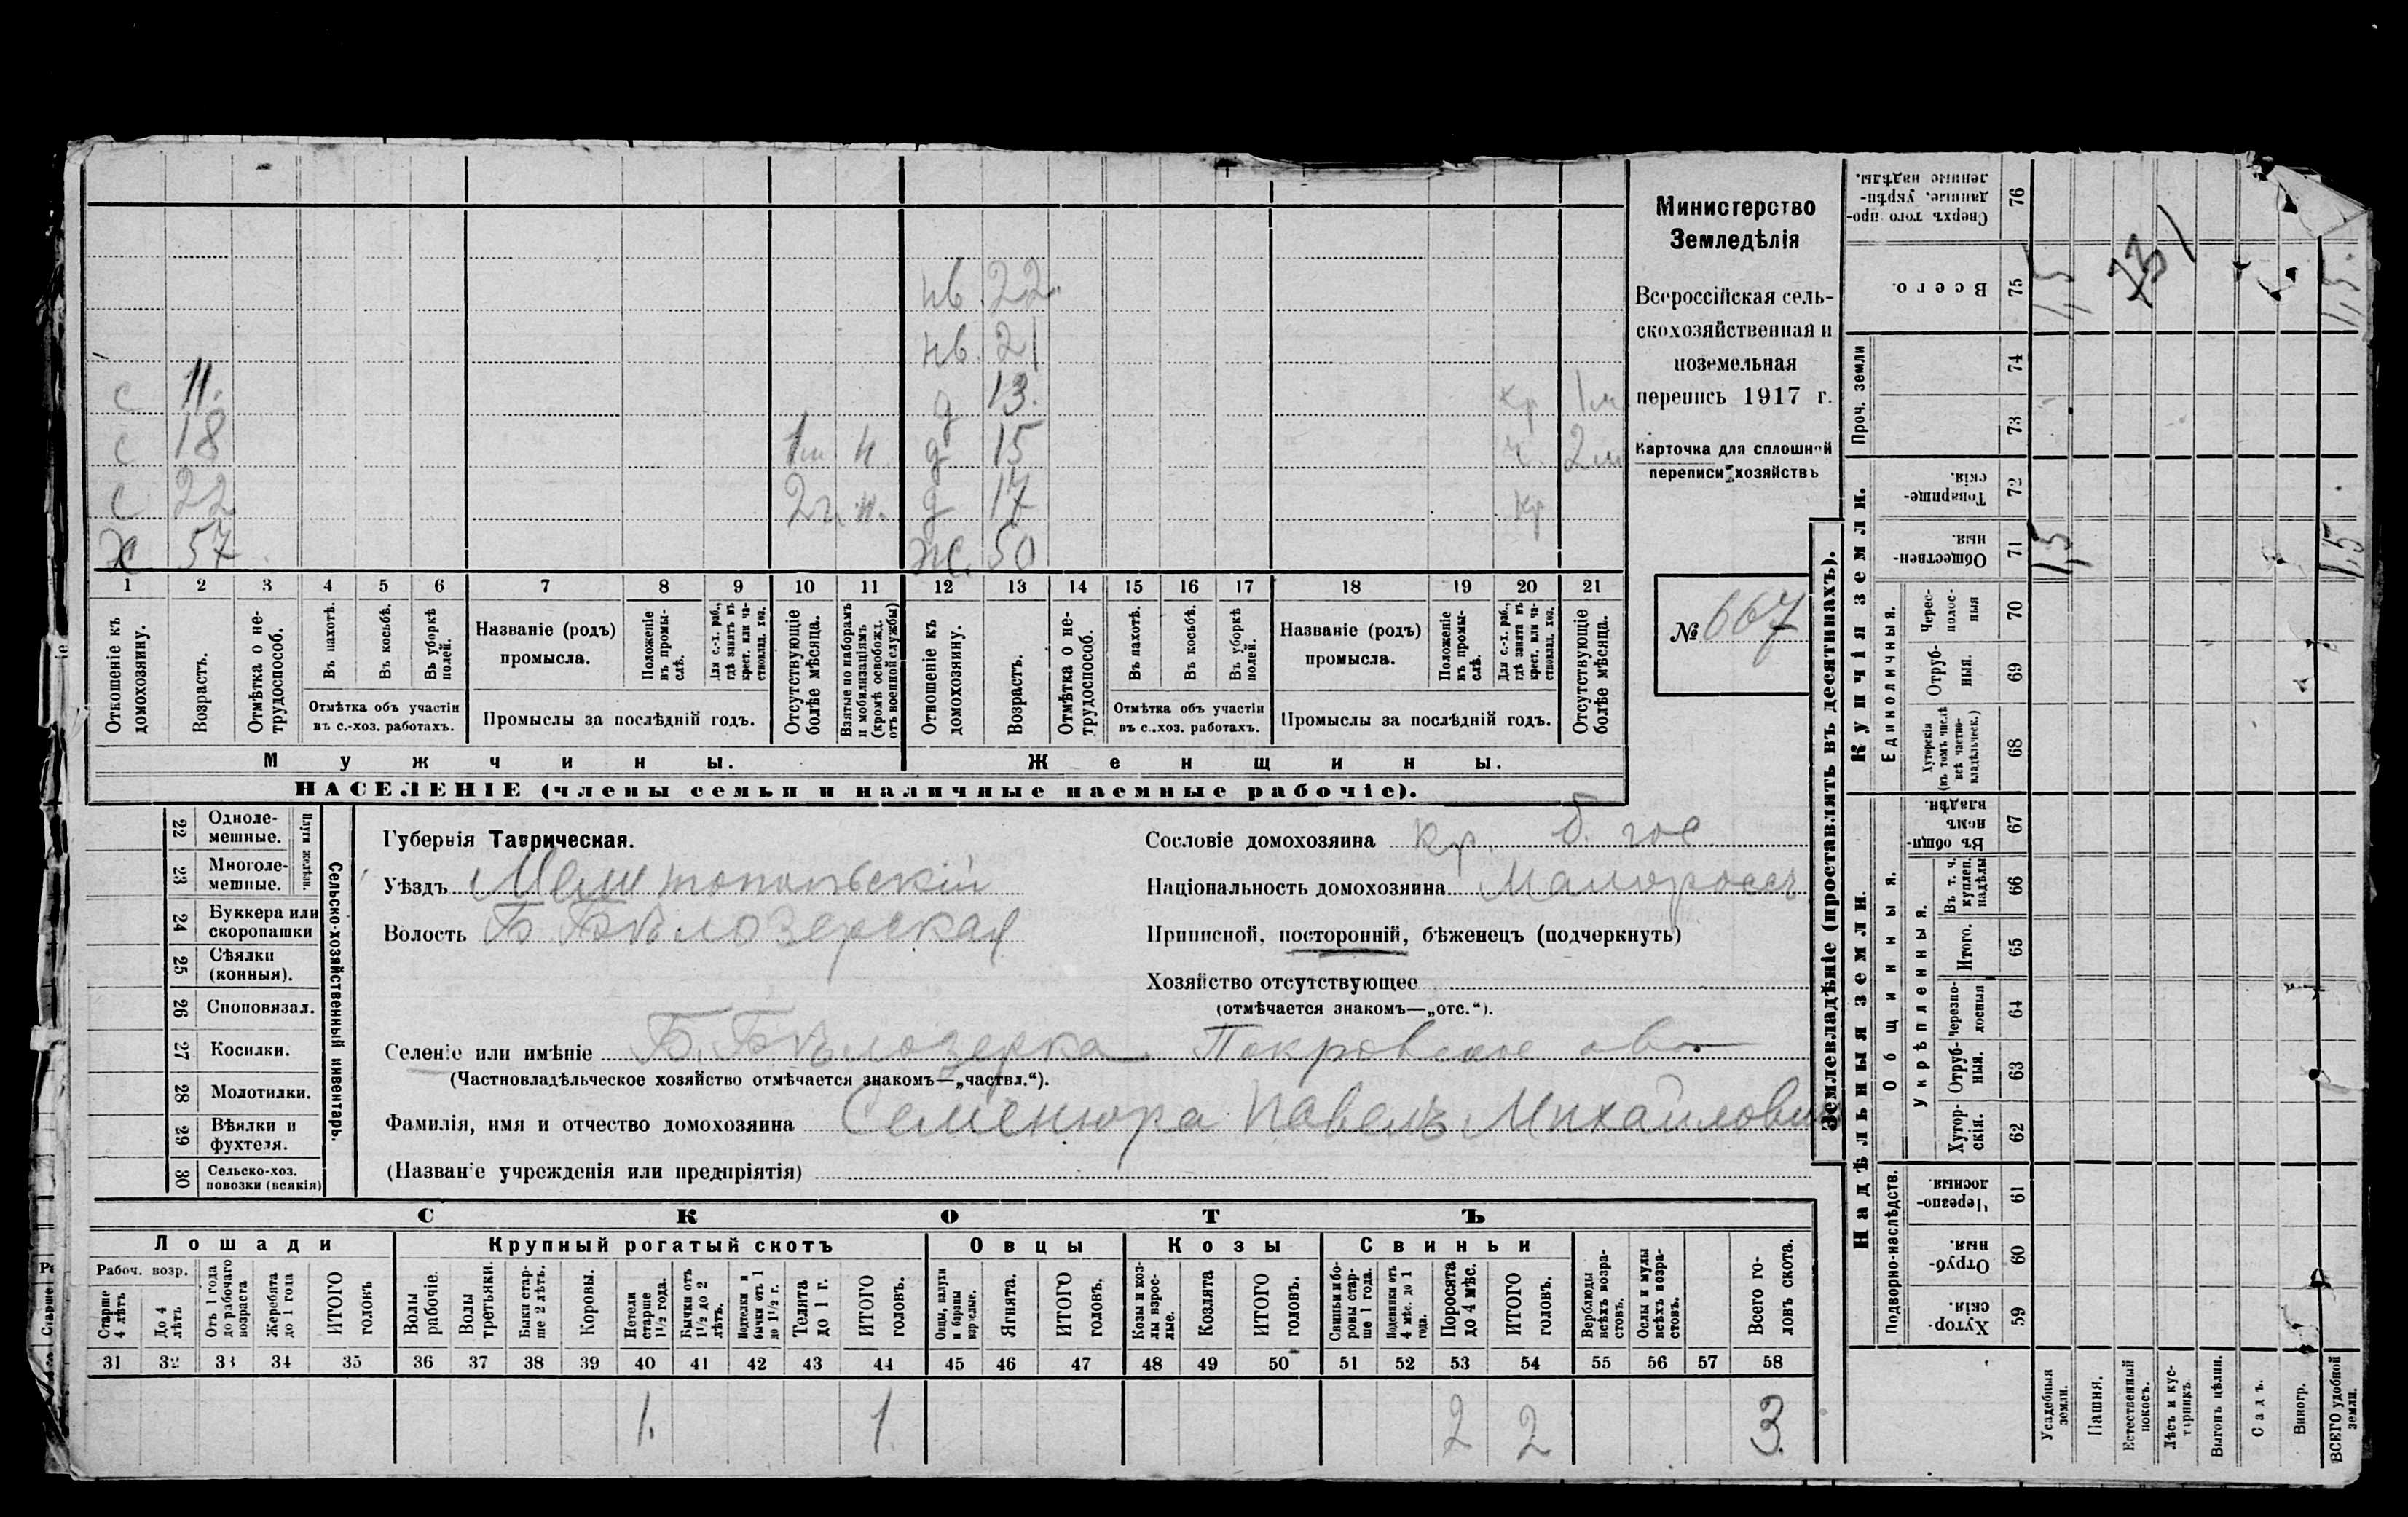 нв. 22.
нв. 21
с 11. д 13. кр. 1м
с 18 1м. н. д 15 ч. 2м
с 22 2г. н. д 17 кр
Х 57 Ж. 50
1 2 3 4 5 6 7 8 9 10 11 12 13 14 15 16 17 18 19 20 21
Отношеніе къ домохозяину.
Возрастъ.
Отмѣтка о нетрудоспособ.
Въ пахотѣ.
Въ косьбѣ.
Въ уборкѣ полей.
Отмѣтка объ участіи въ с.-хоз. работахъ.
Названіе (родъ) промысла.
Положеніе въ промыслѣ.
Для с.-х. раб., гдѣ занятъ въ крест. или частновлад. хоз.
Промыслы за послѣдній годъ.
Отсутствующіе болѣе мѣсяца.
Взятые по наборамъ и мобилизаціямъ (кромѣ освобожд. отъ военной службы)
Отношеніе къ домохозяину.
Возрастъ.
Отмѣтка о нетрудоспособ.
Въ пахотѣ.
Въ косьбѣ.
Въ уборкѣ полей.
Отмѣтка объ участіи въ с.-хоз. работахъ.
Названіе (родъ) промысла.
Положеніе въ промыслѣ.
Для с.-х. раб., гдѣ занята въ крест. или частновлад. хоз.
Промыслы за послѣдній годъ.
Отсутствующіе болѣе мѣсяца.
Мужчины. Женщины.
НАСЕЛЕНІЕ (члены семьи и наличные наемные рабочіе).
Министерство
Земледѣлія
Всероссійская сель-
скохозяйственная и
поземельная
перепись 1917 г.
Карточка для сплошной
переписи хозяйствъ
№ 667
22 Однолемешные.
23 Многолемешные.
Плуги желѣзн.
24 Буккера или скоропашки
25 Сѣялки (конныя).
26 Сноповязал.
27 Косилки.
28 Молотилки.
29 Вѣялки и фухтеля.
30 Сельско-хоз. повозки (всякія)
Сельско-хозяйственный инвентарь.
Губернія Таврическая.
Уѣздъ Мелитопольскій
Волость Б. Бѣлозерская
Сословіе домохозяина кр. б. гос
Національность домохозяина Малороссъ
Приписной, посторонній, бѣженецъ (подчеркнуть)
Хозяйство отсутствующее
(отмѣчается знакомъ—„отс.“).
Селеніе или имѣніе Б. Бѣлозерка Покровское о-во
(Частновладѣльческое хозяйство отмѣчается знакомъ—„частвл.“).
Фамилія, имя и отчество домохозяина Семенюра Павелъ Михайлович
(Названіе учрежденія или предпріятія)
СКОТЪ
Лошади Крупный рогатый скотъ Овцы Козы Свиньи
Рабоч. возр.
Старше 4 лѣтъ
До 4 лѣтъ
Отъ 1 года до рабочаго возраста
Жеребята до 1 года
ИТОГО головъ
Волы рабочіе.
Волы третьяки.
Быки старше 2 лѣтъ.
Коровы.
Нетели старше 1½ года.
Бычки отъ 1½ до 2 лѣтъ.
Подтелки и бычки отъ 1 до 1½ г.
Телята до 1 г.
ИТОГО головъ.
Овцы, валухи и бараны взрослые.
Ягнята.
ИТОГО головъ.
Козы и козлы взрослые.
Козлята
ИТОГО головъ.
Свиньи и боровы старше 1 года.
Подсвинки отъ 4 мѣс. до 1 года.
Поросята до 4 мѣс.
ИТОГО головъ.
Верблюды всѣхъ возрастовъ.
Ослы и мулы всѣхъ возрастовъ.
Всего головъ скота.
31 32 33 34 35 36 37 38 39 40 41 42 43 44 45 46 47 48 49 50 51 52 53 54 55 56 57 58
1. 1. 2 2 3.
Землевладѣніе (проставлять въ десятинахъ).
Купчія земли.
Надѣльныя земли.
76 Сверхъ того проданные, укрѣпленные надѣлы.
75 Всего. 1,5 1,5.
Проч. земли 74 73
72 Товарищескія.
71 Общественныя. 1,5 1,5
Единоличныя.
70 Чересполосныя
69 Отрубныя.
68 Хуторскія (въ томъ числѣ всѣ частновладѣльческ.)
67 Въ общинномъ владѣн.
66 Въ т. ч. куплен. надѣлы
65 Итого.
64 Черезполосныя
63 Отрубныя.
62 Хуторскія.
Укрѣпленныя.
Общинныя.
61 Черезполосныя.
60 Отрубныя.
59 Хуторскія.
Подворно-наслѣдств.
Усадебныя земли.
Пашня.
Естественный покосъ.
Лѣсъ и кустарникъ.
Выгонъ цѣлин.
Садъ.
Виногр.
ВСЕГО удобной земли.